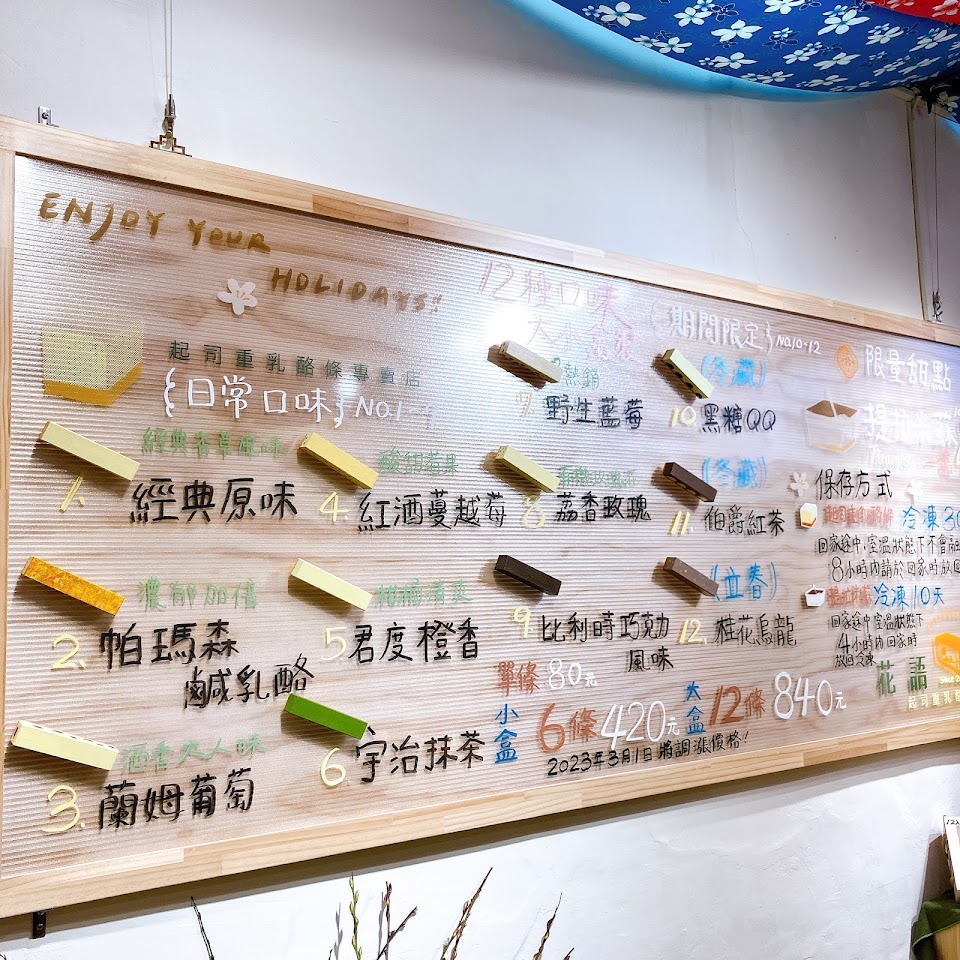 ENJOY YOUR
HOLIDAYS!!
起司重乳酪條專賣店
{日常口味} NO.1-
經典香草風味
1. 經典原味
濃郁加倍
2. 帕瑪森
鹹乳酪
酒香大人味
3. 蘭姆葡萄
4. 紅酒蔓越莓
5 君度橙香
6. 宇治抹茶
12種口味
熱銷
7. 野生藍莓
8 荔香玫瑰
9 比利時巧克力
風味
{期間限定} NO.10-12
(冬藏)
10. 黑糖QQ
(冬藏)
11. 伯爵紅茶
(立春)
12. 桂花烏龍
單條 80元
小盒 6條 420元 大盒 12條 840元
2023年3月1日 將調漲價格!!
限量甜點
提拉米蘇
保存方式
冷凍30
回家途中,室溫狀態下不會
8小時內請於回家時放回
冷凍10天
回家途中室溫狀態下
4小時內回家時
放回冷凍
花語
起司重乳